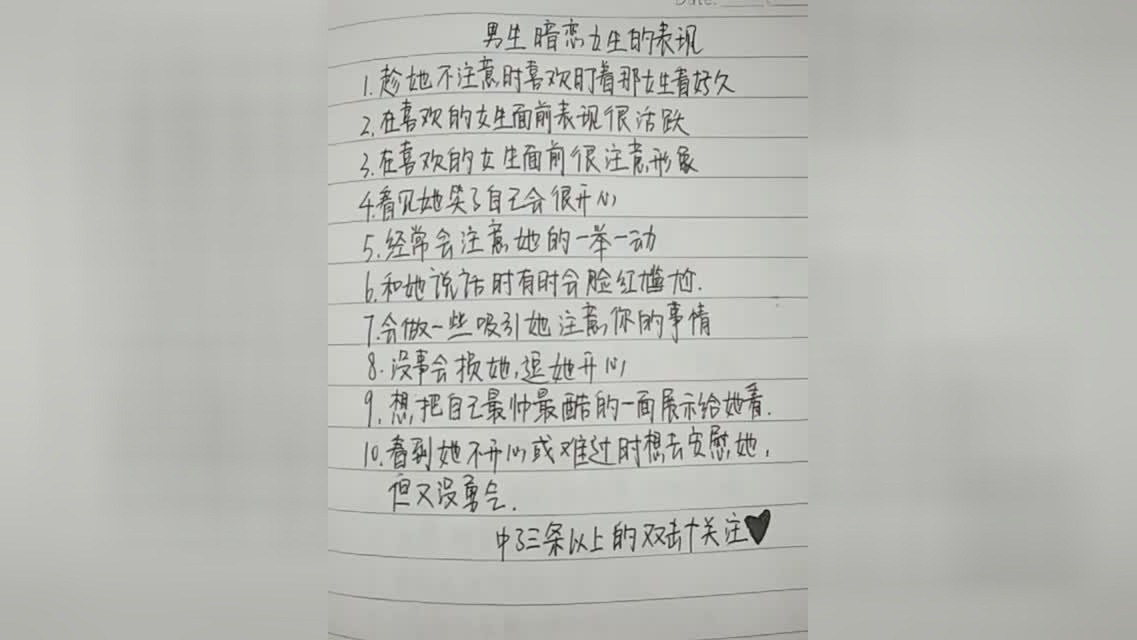 Date:
男生暗恋女生的表现
1.趁她不注意时喜欢盯着那女生看好久
2.在喜欢的女生面前表现很活跃
3.在喜欢的女生面前很注意形象
4.看见她笑了自己会很开心
5.经常会注意她的一举一动
6.和她说话时有时会脸红尴尬.
7.会做一些吸引她注意你的事情
8.没事会损她,逗她开心
9.想把自己最帅最酷的一面展示给她看.
10.看到她不开心或难过时想去安慰她,
但又没勇气.
中了三条以上的双击+关注♥